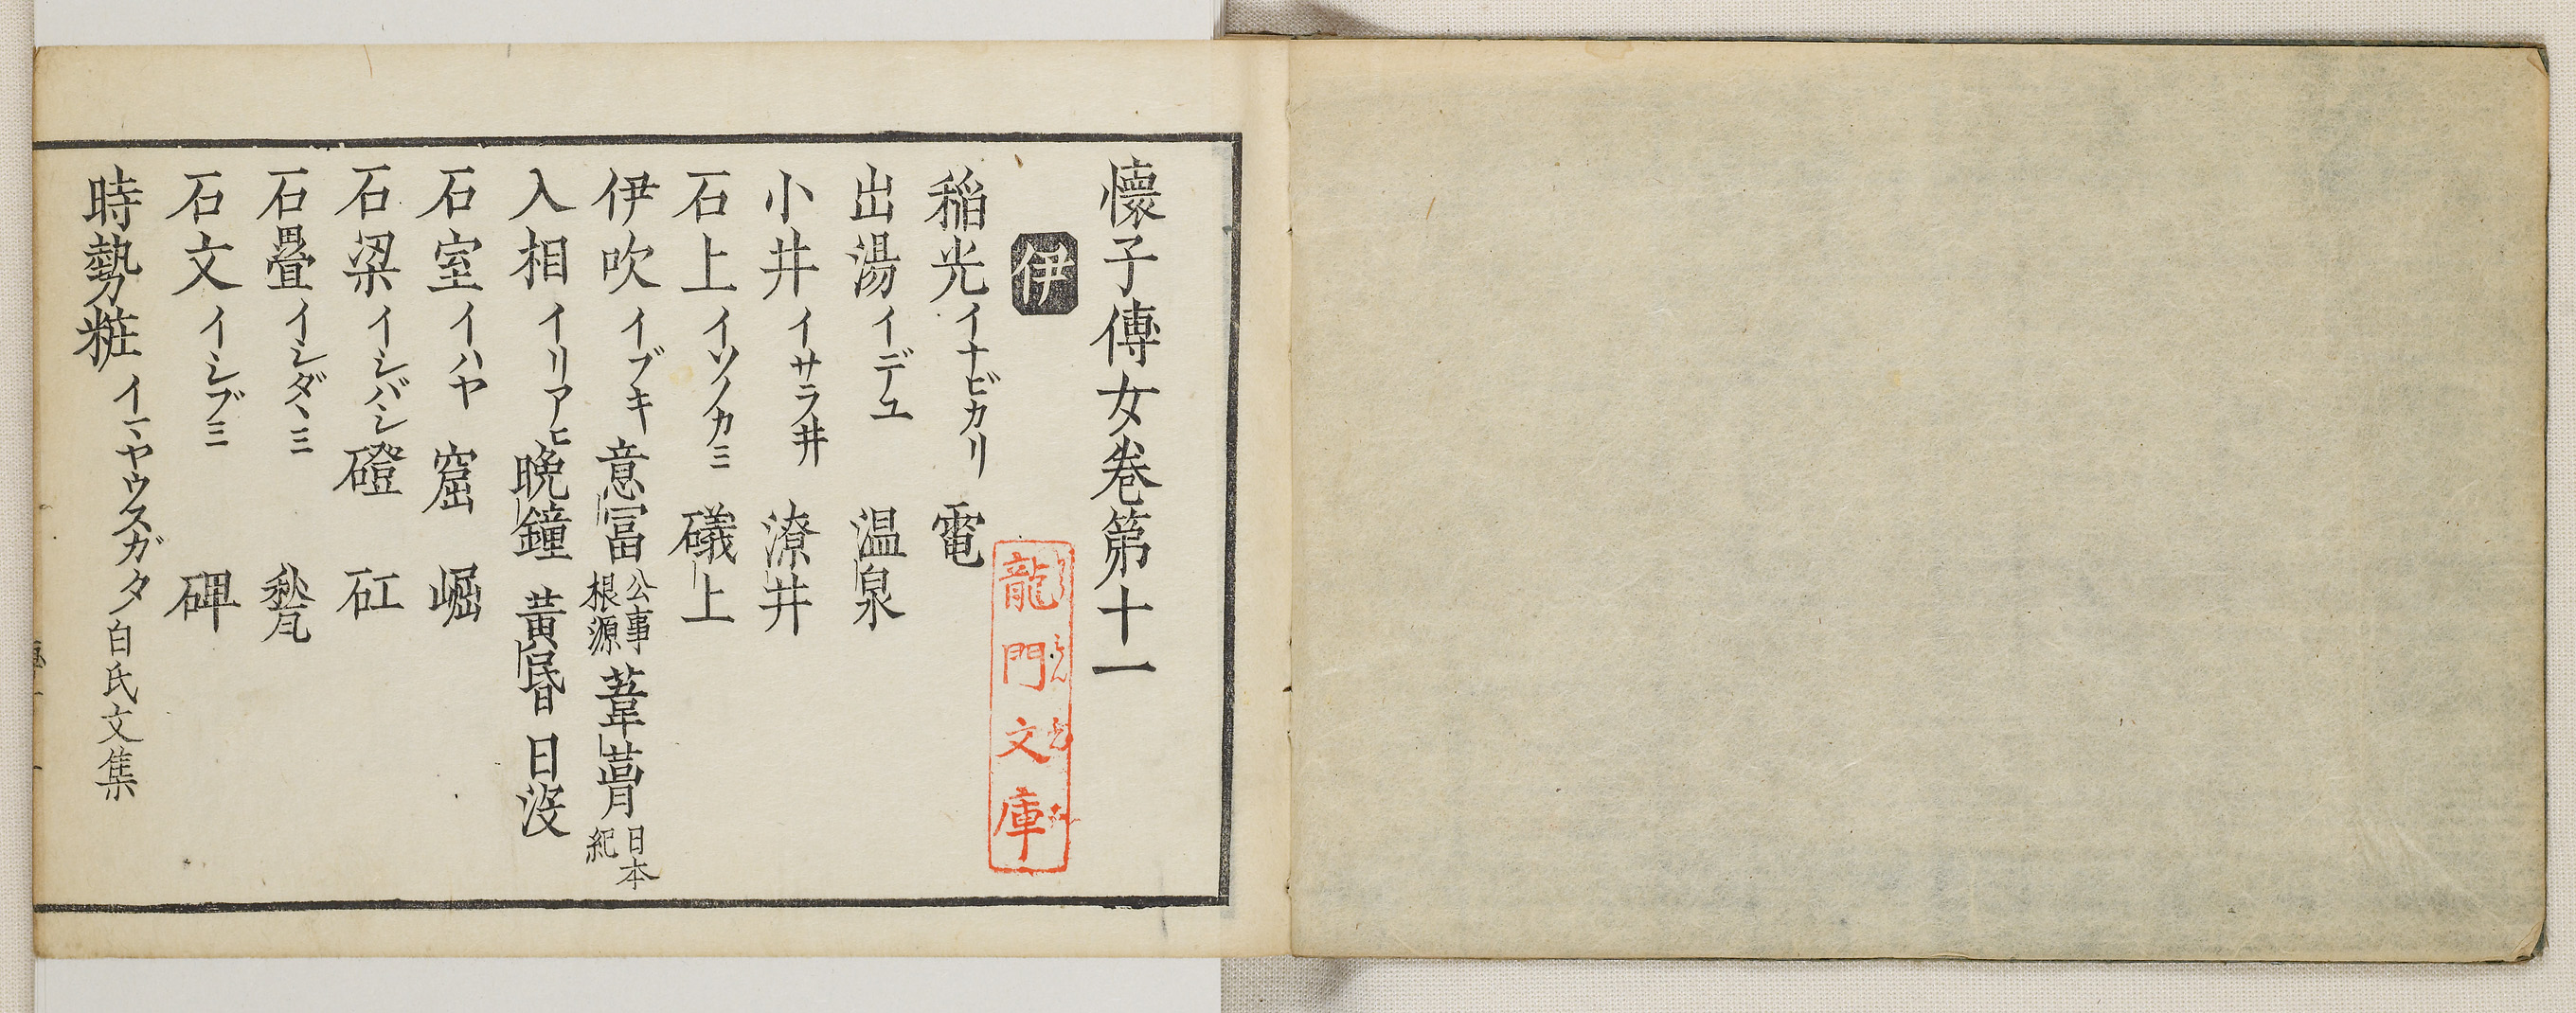 懐子傳女巻第十一
伊
龍門文庫
稲光 イナビカリ 電
出湯 イデユ 温泉
小井 イサラ井 潦井
石上 イソノカミ 礒上
伊吹 イブキ 意冨 公事根源 葦䔍 日本紀
入相 イリアヒ 晩鐘 黄昏 日没
石室 イハヤ 窟 崛
石梁 イシバシ 磴 矼
石畳 イシダヽミ 甃
石文 イシブミ 碑
時勢粧 イマヤウスガタ 白氏文集